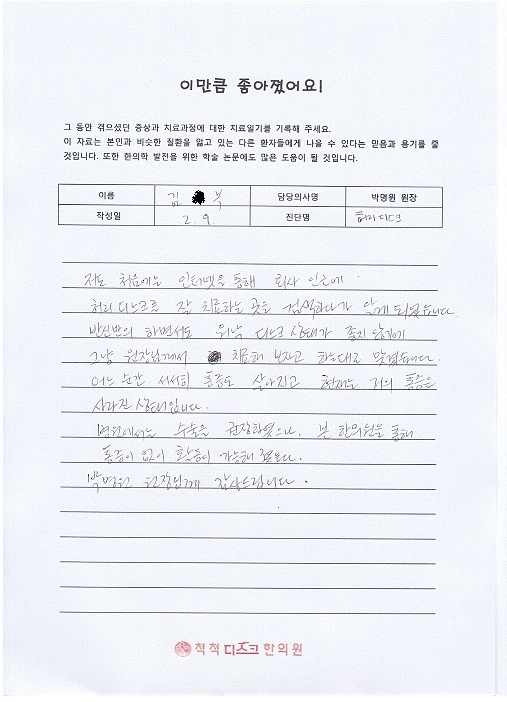 이만큼 좋아졌어요!
그 동안 겪으셨던 증상과 치료과정에 대한 치료일기를 기록해 주세요.
이 자료는 본인과 비슷한 질환을 앓고 있는 다른 환자들에게 나을 수 있다는 믿음과 용기를 줄
것입니다. 또한 한의학 발전을 위한 학술 논문에도 많은 도움이 될 것입니다.
이름 김 부 담당의사명 박명원 원장
작성일 2. 9 진단명 허리디스크
저도 처음에는 인터넷을 통해 회사 인근에
허리디스크를 잘 치료하는 곳을 검색하다가 알게 되었습니다.
반신반의 하면서도 워낙 디스크 상태가 좋지 않기에
그냥 원장님께서 치료해 보자고 하는대로 맞겼습니다.
어느 순간 서서히 통증도 살아지고 현재는 거의 통증은
사라진 상태입니다.
병원에서는 수술을 권장하였으나, 본 한의원을 통해
통증이 없이 활동이 가능해 졌습니다.
박명원 원장님께 감사드립니다.
척척디스크한의원